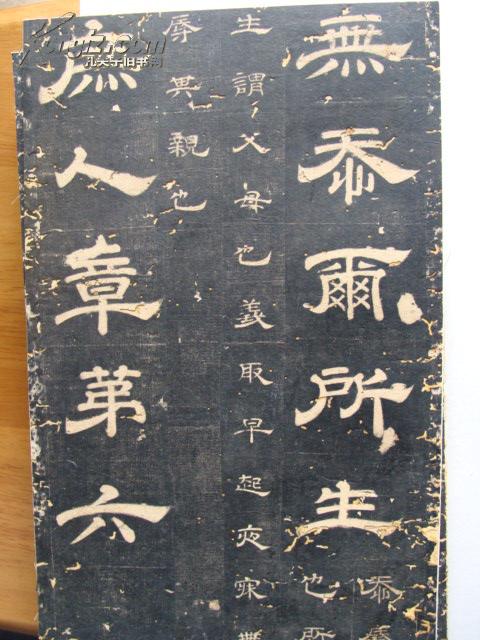 無忝爾所生
忝辱
也所
生謂父母也義取早起夜寐無
辱其親也
庶人章第六
孔夫子旧书网